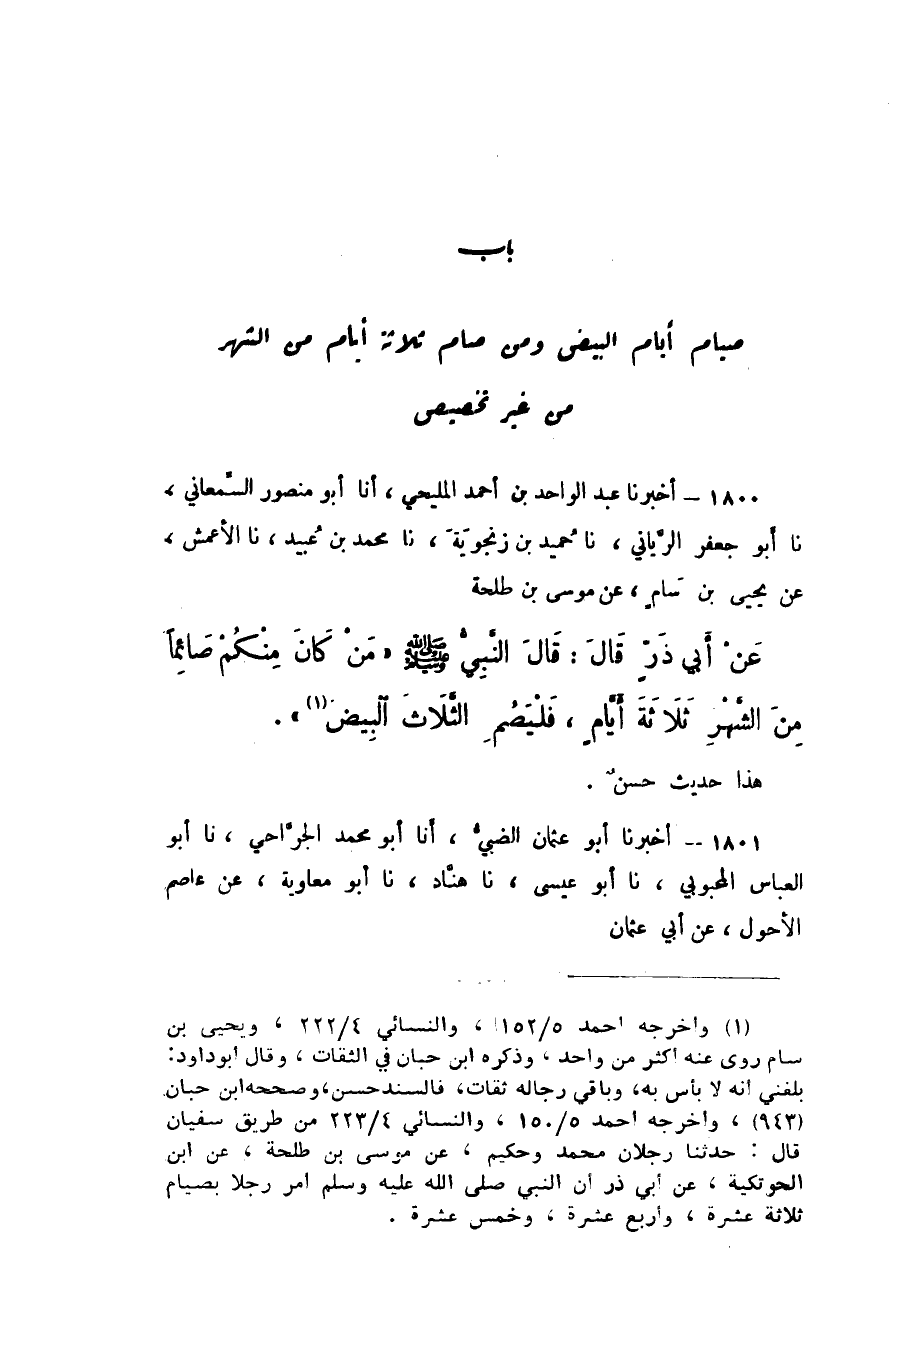 باب
صيام أيام البيض ومن صام ثلاثة أيام من الشهر
من غير تخصيص
١٨٠٠ – أخبرنا عبد الواحد بن أحمد المليحي ، أنا أبو منصور السَّمعاني ،
نا أبو جعفر الرَّياني ، نا حُميد بن زنجويَةَ ، نا محمد بن عُبيد ، نا الأعمش ،
عن يحيى بن سَامٍ ، عن موسى بن طلحة
عَنْ أَبِي ذَرٍّ قَالَ : قَالَ النَّبِيُّ ﷺ « مَنْ كَانَ مِنْكُمْ صَائِماً
مِنَ الشَّهْرِ ثَلَاثَةَ أَيَّامٍ ، فَلْيَصُمِ الثَّلَاثَ الْبِيضَ(١) » .
هذا حديث حسنٌ .
١٨٠١ -- أخبرنا أبو عثمان الضبيُّ ، أنا أبو محمد الجرَّاحي ، نا أبو
العباس المحبوبي ، نا أبو عيسى ، نا هنَّاد ، نا أبو معاوية ، عن عاصم
الأحول ، عن أبي عثمان
(١) وأخرجه احمد ١٥٢/٥ ، والنسائي ٢٢٢/٤ ، ويحيى بن
سام روى عنه اكثر من واحد ، وذكره ابن حبان في الثقات ، وقال ابوداود:
بلغني انه لا بأس به، وباقي رجاله ثقات، فالسندحسن،وصححه ابن حبان
(٩٤٣) ، وأخرجه احمد ١٥٠/٥ ، والنسائي ٢٢٣/٤ من طريق سفيان
قال : حدثنا رجلان محمد وحكيم ، عن موسى بن طلحة ، عن ابن
الحوتكية ، عن أبي ذر أن النبي صلى الله عليه وسلم أمر رجلا بصيام
ثلاثة عشرة ، وأربع عشرة ، وخمس عشرة .